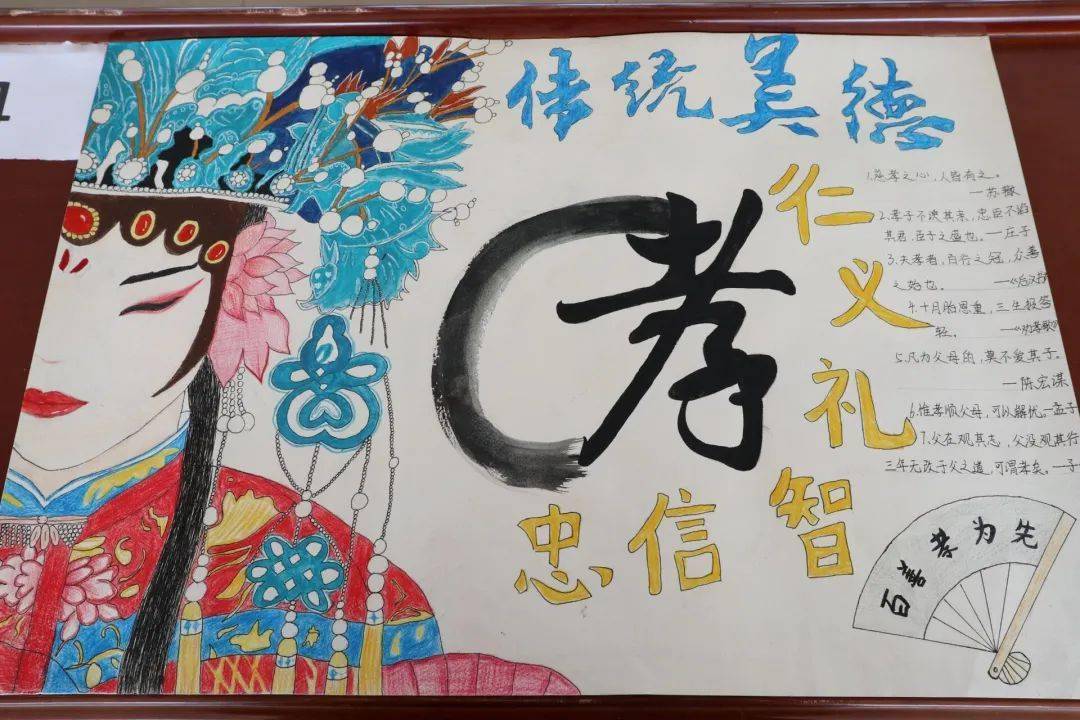 传统美德
孝
仁
义
礼
智
忠信
1.慈孝之心,人皆有之。
—苏辙
2.孝子不谀其亲,忠臣不谄
其君,臣子之盛也。—庄子
3.夫孝者,百行之冠,众善
之始也。—《后汉书
4.十月胎恩重,三生报答
轻。—《劝孝歌》
5.凡为父母的,莫不爱其子。
—陈宏谋
6.惟孝顺父母,可以解忧。—孟子
7.父在观其志,父没观其行
三年无改于父之道,可谓孝矣。—子
百善孝为先